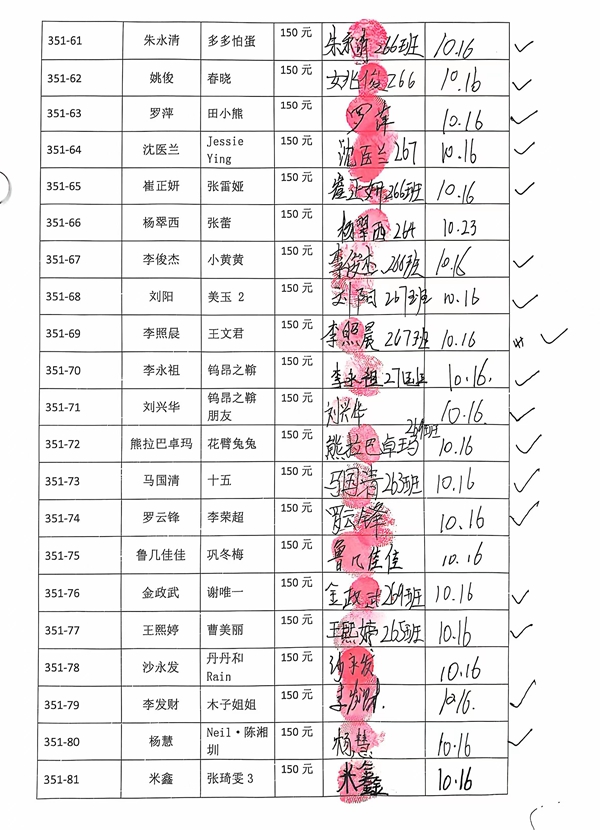 351-61 朱永清 多多怕蛋 150 元 朱永清 266班 10.16
351-62 姚俊 春晓 150 元 姚俊 266 10.16
351-63 罗萍 田小熊 150 元 罗萍 10.16
351-64 沈医兰 Jessie Ying 150 元 沈医兰 267 10.16
351-65 崔正妍 张雷娅 150 元 崔正妍 266班 10.16
351-66 杨翠西 张蕾 150 元 杨翠西 264 10.23
351-67 李俊杰 小黄黄 150 元 李俊杰 266班 10.16
351-68 刘阳 美玉 2 150 元 刘阳 267班 10.16
351-69 李照晨 王文君 150 元 李照晨 267班 10.16
351-70 李永祖 钨昂之鞥 150 元 李永祖 27 10.16.
351-71 刘兴华 钨昂之鞥朋友 150 元 刘兴华 10.16
351-72 熊拉巴卓玛 花臂兔兔 150 元 熊拉巴卓玛 10.16
351-73 马国清 十五 150 元 马国清 263班 10.16
351-74 罗云锋 李荣超 150 元 罗云锋 10.16
351-75 鲁几佳佳 巩冬梅 150 元 鲁几佳佳 10.16
351-76 金政武 谢唯一 150 元 金政武 269班 10.16
351-77 王熙婷 曹美丽 150 元 王熙婷 265班 10.16
351-78 沙永发 丹丹和 Rain 150 元 沙永发 10.16
351-79 李发财 木子姐姐 150 元 李发财. 10.16.
351-80 杨慧 Neil·陈湘圳 150 元 杨慧 10.16
351-81 米鑫 张琦雯 3 150 元 米鑫 10.16